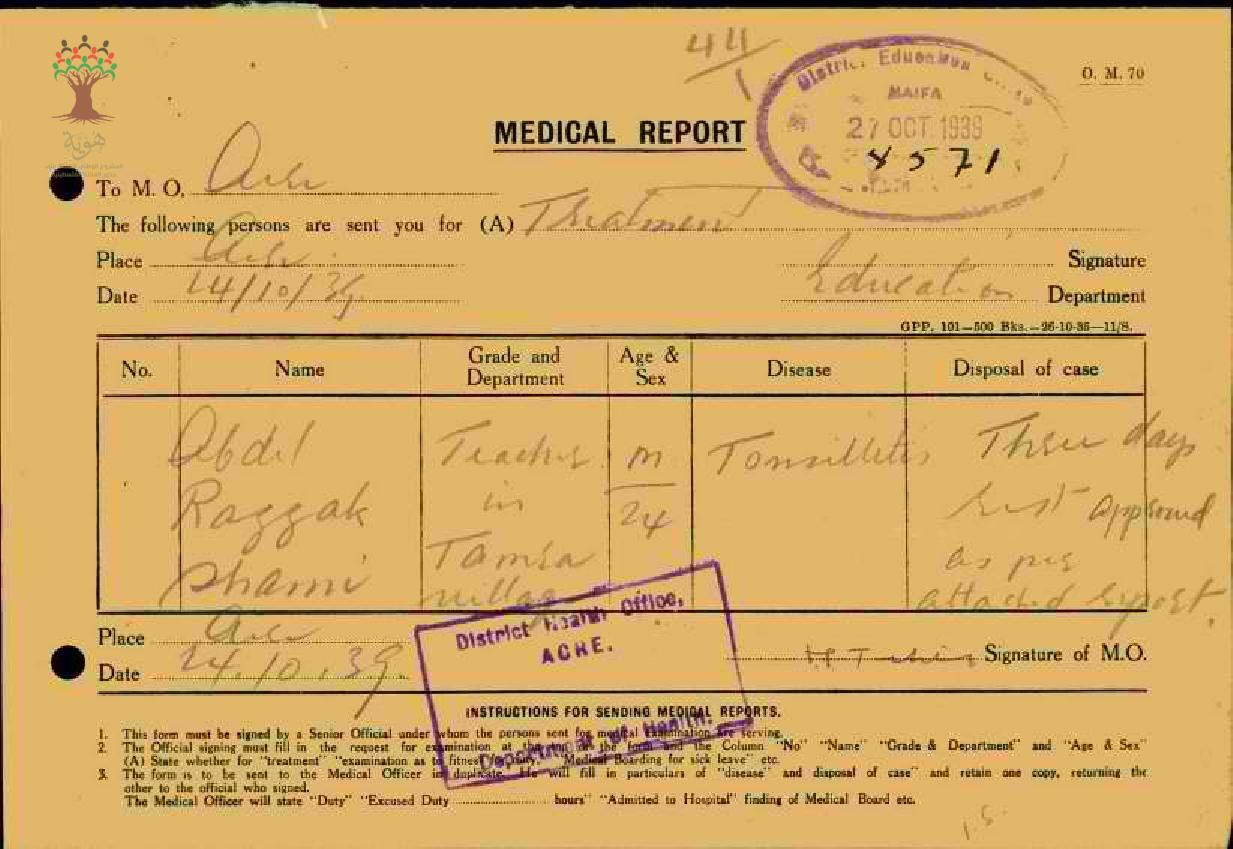 44/1
District Education
HAIFA
27 OCT 1939
8571
O. M. 70
هوية
MEDICAL REPORT
To M. O. Acre
The following persons are sent you for (A) Treatment
Place Acre
Signature
Date 24/10/39
Education Department
GPP. 101—500 Bks.—26-10-36—11/8.
No. Name Grade and Department Age & Sex Disease Disposal of case
Abdel Teacher M Tonsilletis Three days
Razzak in 24 rest approved
Shami Tamra as per
village attached report.
Place Acre
Date 24.10.39.
Signature of M.O.
District Health Office,
ACRE.
Department of Health.
INSTRUCTIONS FOR SENDING MEDICAL REPORTS.
1. This form must be signed by a Senior Official under whom the persons sent for medical examination are serving.
2. The Official signing must fill in the request for examination at the top of the form and the Column "No" "Name" "Grade & Department" and "Age & Sex"
(A) State whether for "treatment" "examination as to fitness for duty." "Medical Boarding for sick leave" etc.
3. The form is to be sent to the Medical Officer in duplicate. He will fill in particulars of "disease" and disposal of case" and retain one copy, returning the
other to the official who signed.
The Medical Officer will state "Duty" "Excused Duty ........................ hours" "Admitted to Hospital" finding of Medical Board etc.